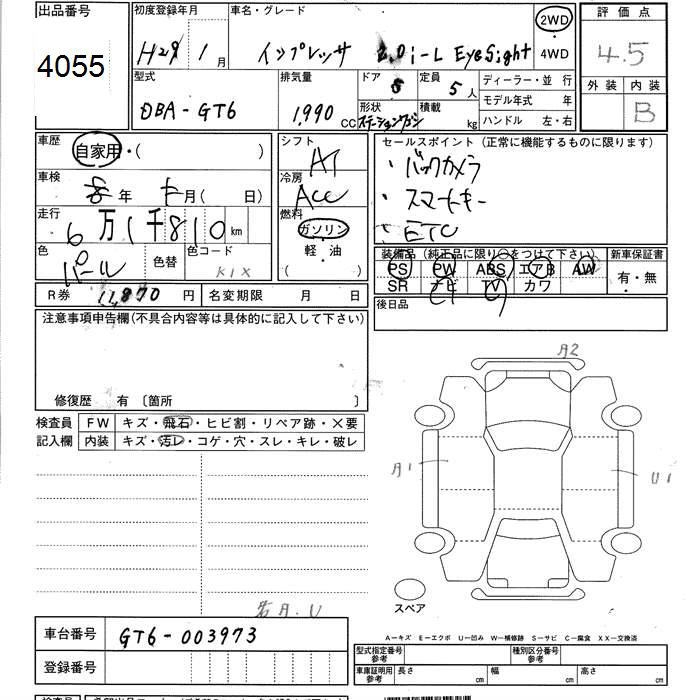 出品番号
4055
初度登録年月
H29年 1月
車名・グレード
インプレッサ 2.0i-L EyeSight
2WD
4WD
評価点
4.5
外装 内装
B
型式
DBA-GT6
排気量
1,990 CC
ドア
5
定員
5人
形状
ステーションワゴン
積載
kg
ディーラー・並行
モデル年式 年
ハンドル 左・右
車歴
自家用・( )
車検
年 月( 日)
走行
6万1千810km
色
パール
色替
色コード
K1X
シフト
AT
冷房
ACC
燃料
ガソリン
・
軽・油
( )
セールスポイント (正常に機能するものに限ります)
・バックカメラ
・スマートキー
・ETC
装備品 (純正品に限り○をつけて下さい)
PS PW ABS エアB AW
SR ナビ TV カワ
新車保証書
有・無
後日品
R券 11,870円
名変期限 月 日
注意事項申告欄(不具合内容等は具体的に記入して下さい)
修復歴 有 〔箇所 〕
検査員
記入欄
FW キズ・飛石・ヒビ割・リペア跡・×要
内装 キズ・汚レ・コゲ・穴・スレ・キレ・破レ
A2
A1
U1
スペア
若A.U
車台番号 GT6-003973
登録番号
A－キズ E－エクボ U－凹み W－補修跡 S－サビ C－腐食 XX－交換済
型式指定番号
参考
種別区分番号
参考
車庫証明用
参考
長さ cm
幅 cm
高さ cm